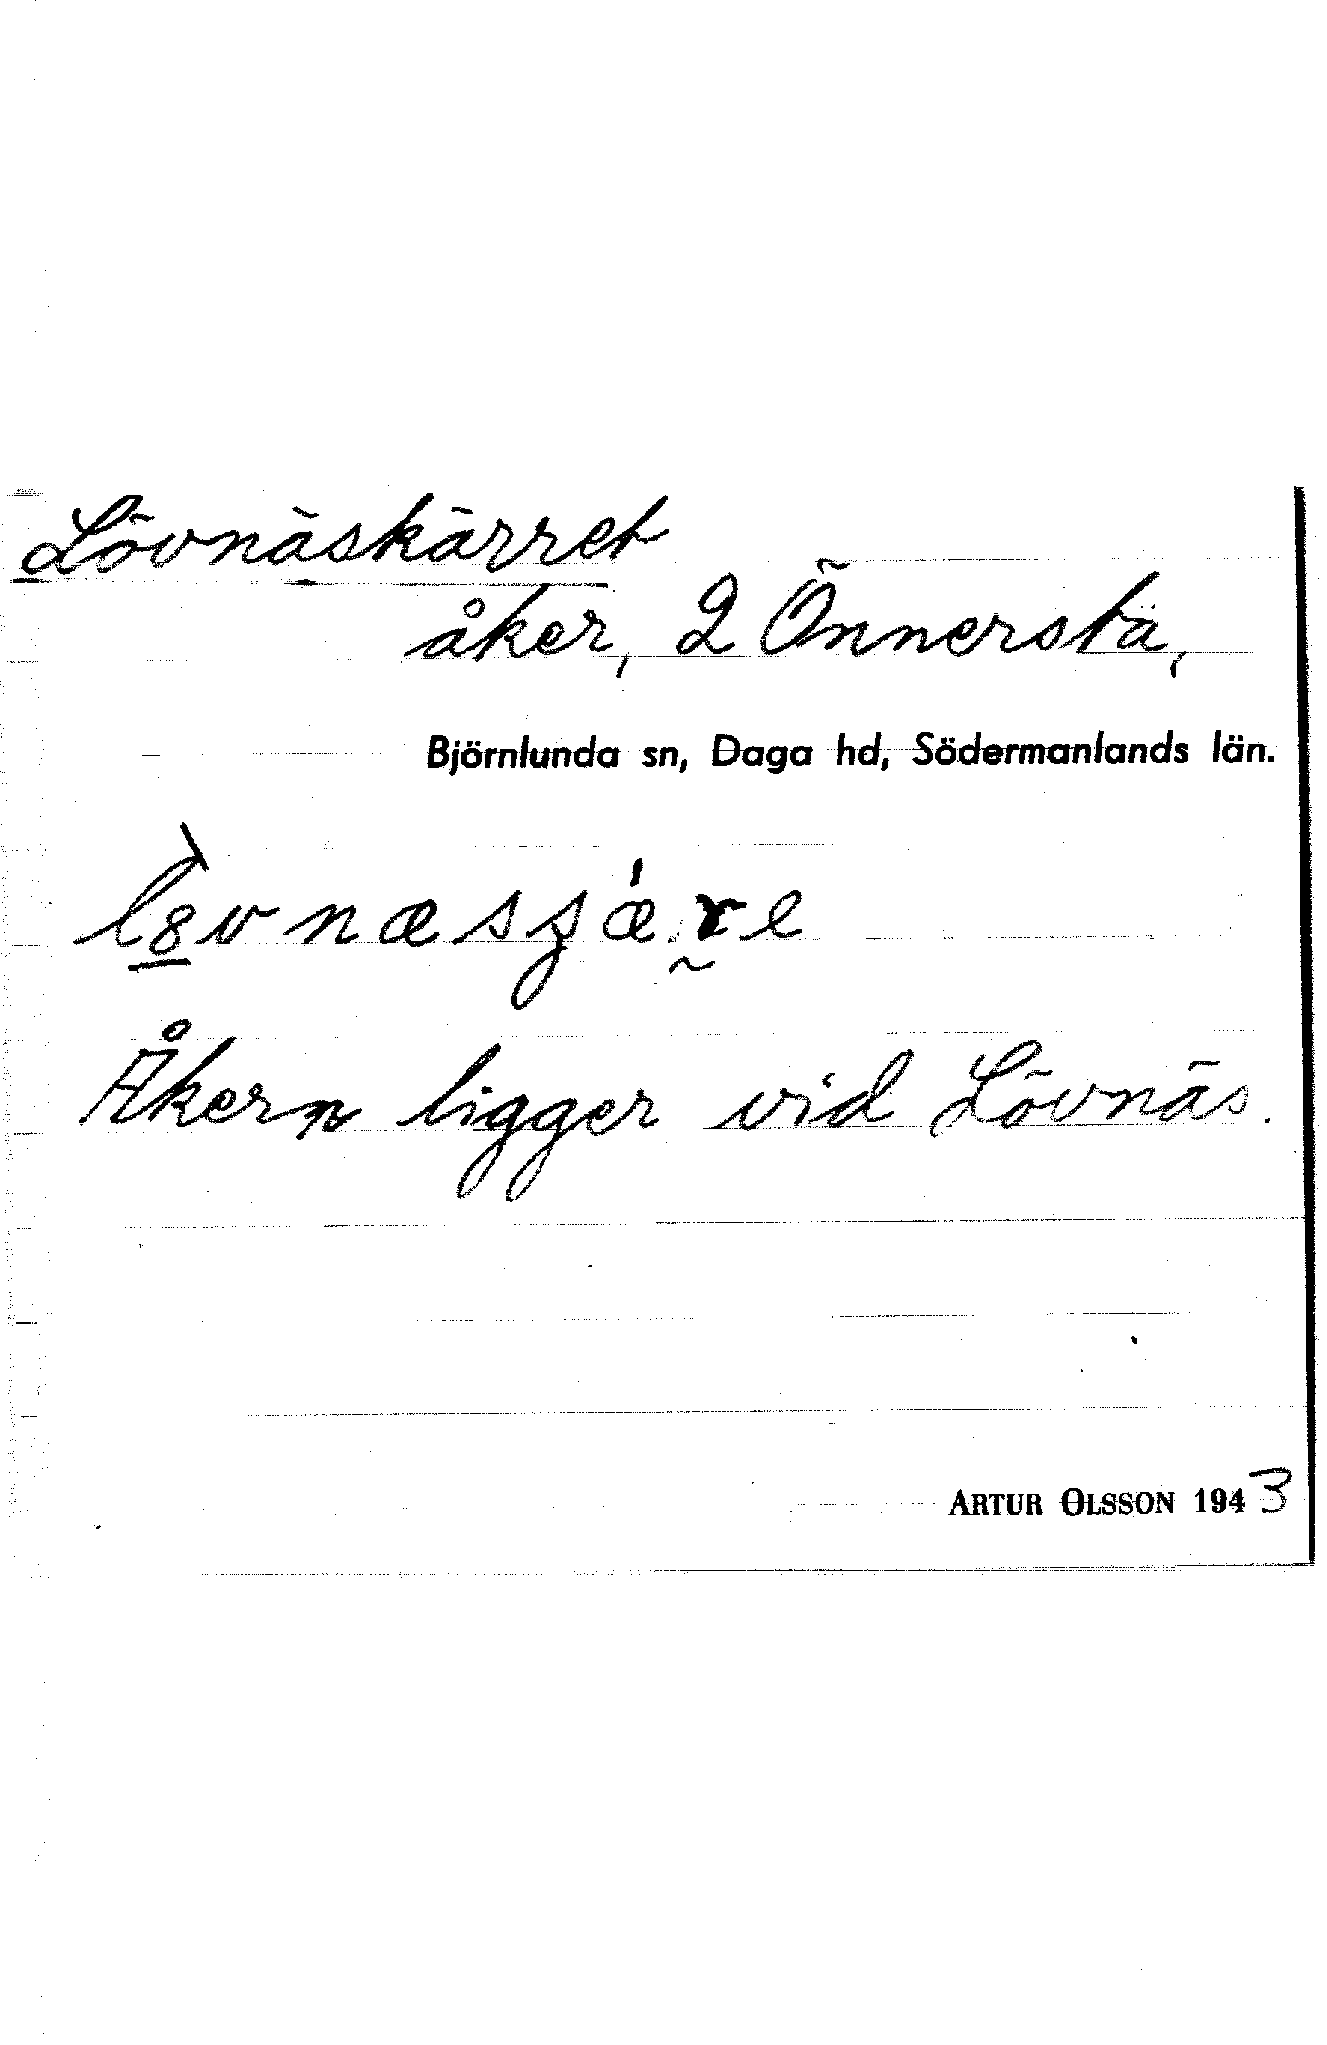 Lövnäskärret
åker, 2 Önnerstä,
Björnlunda sn, Daga hd, Södermanlands län.
Åkern ligger vid Lövnäs.
ARTUR OLSSON 1943